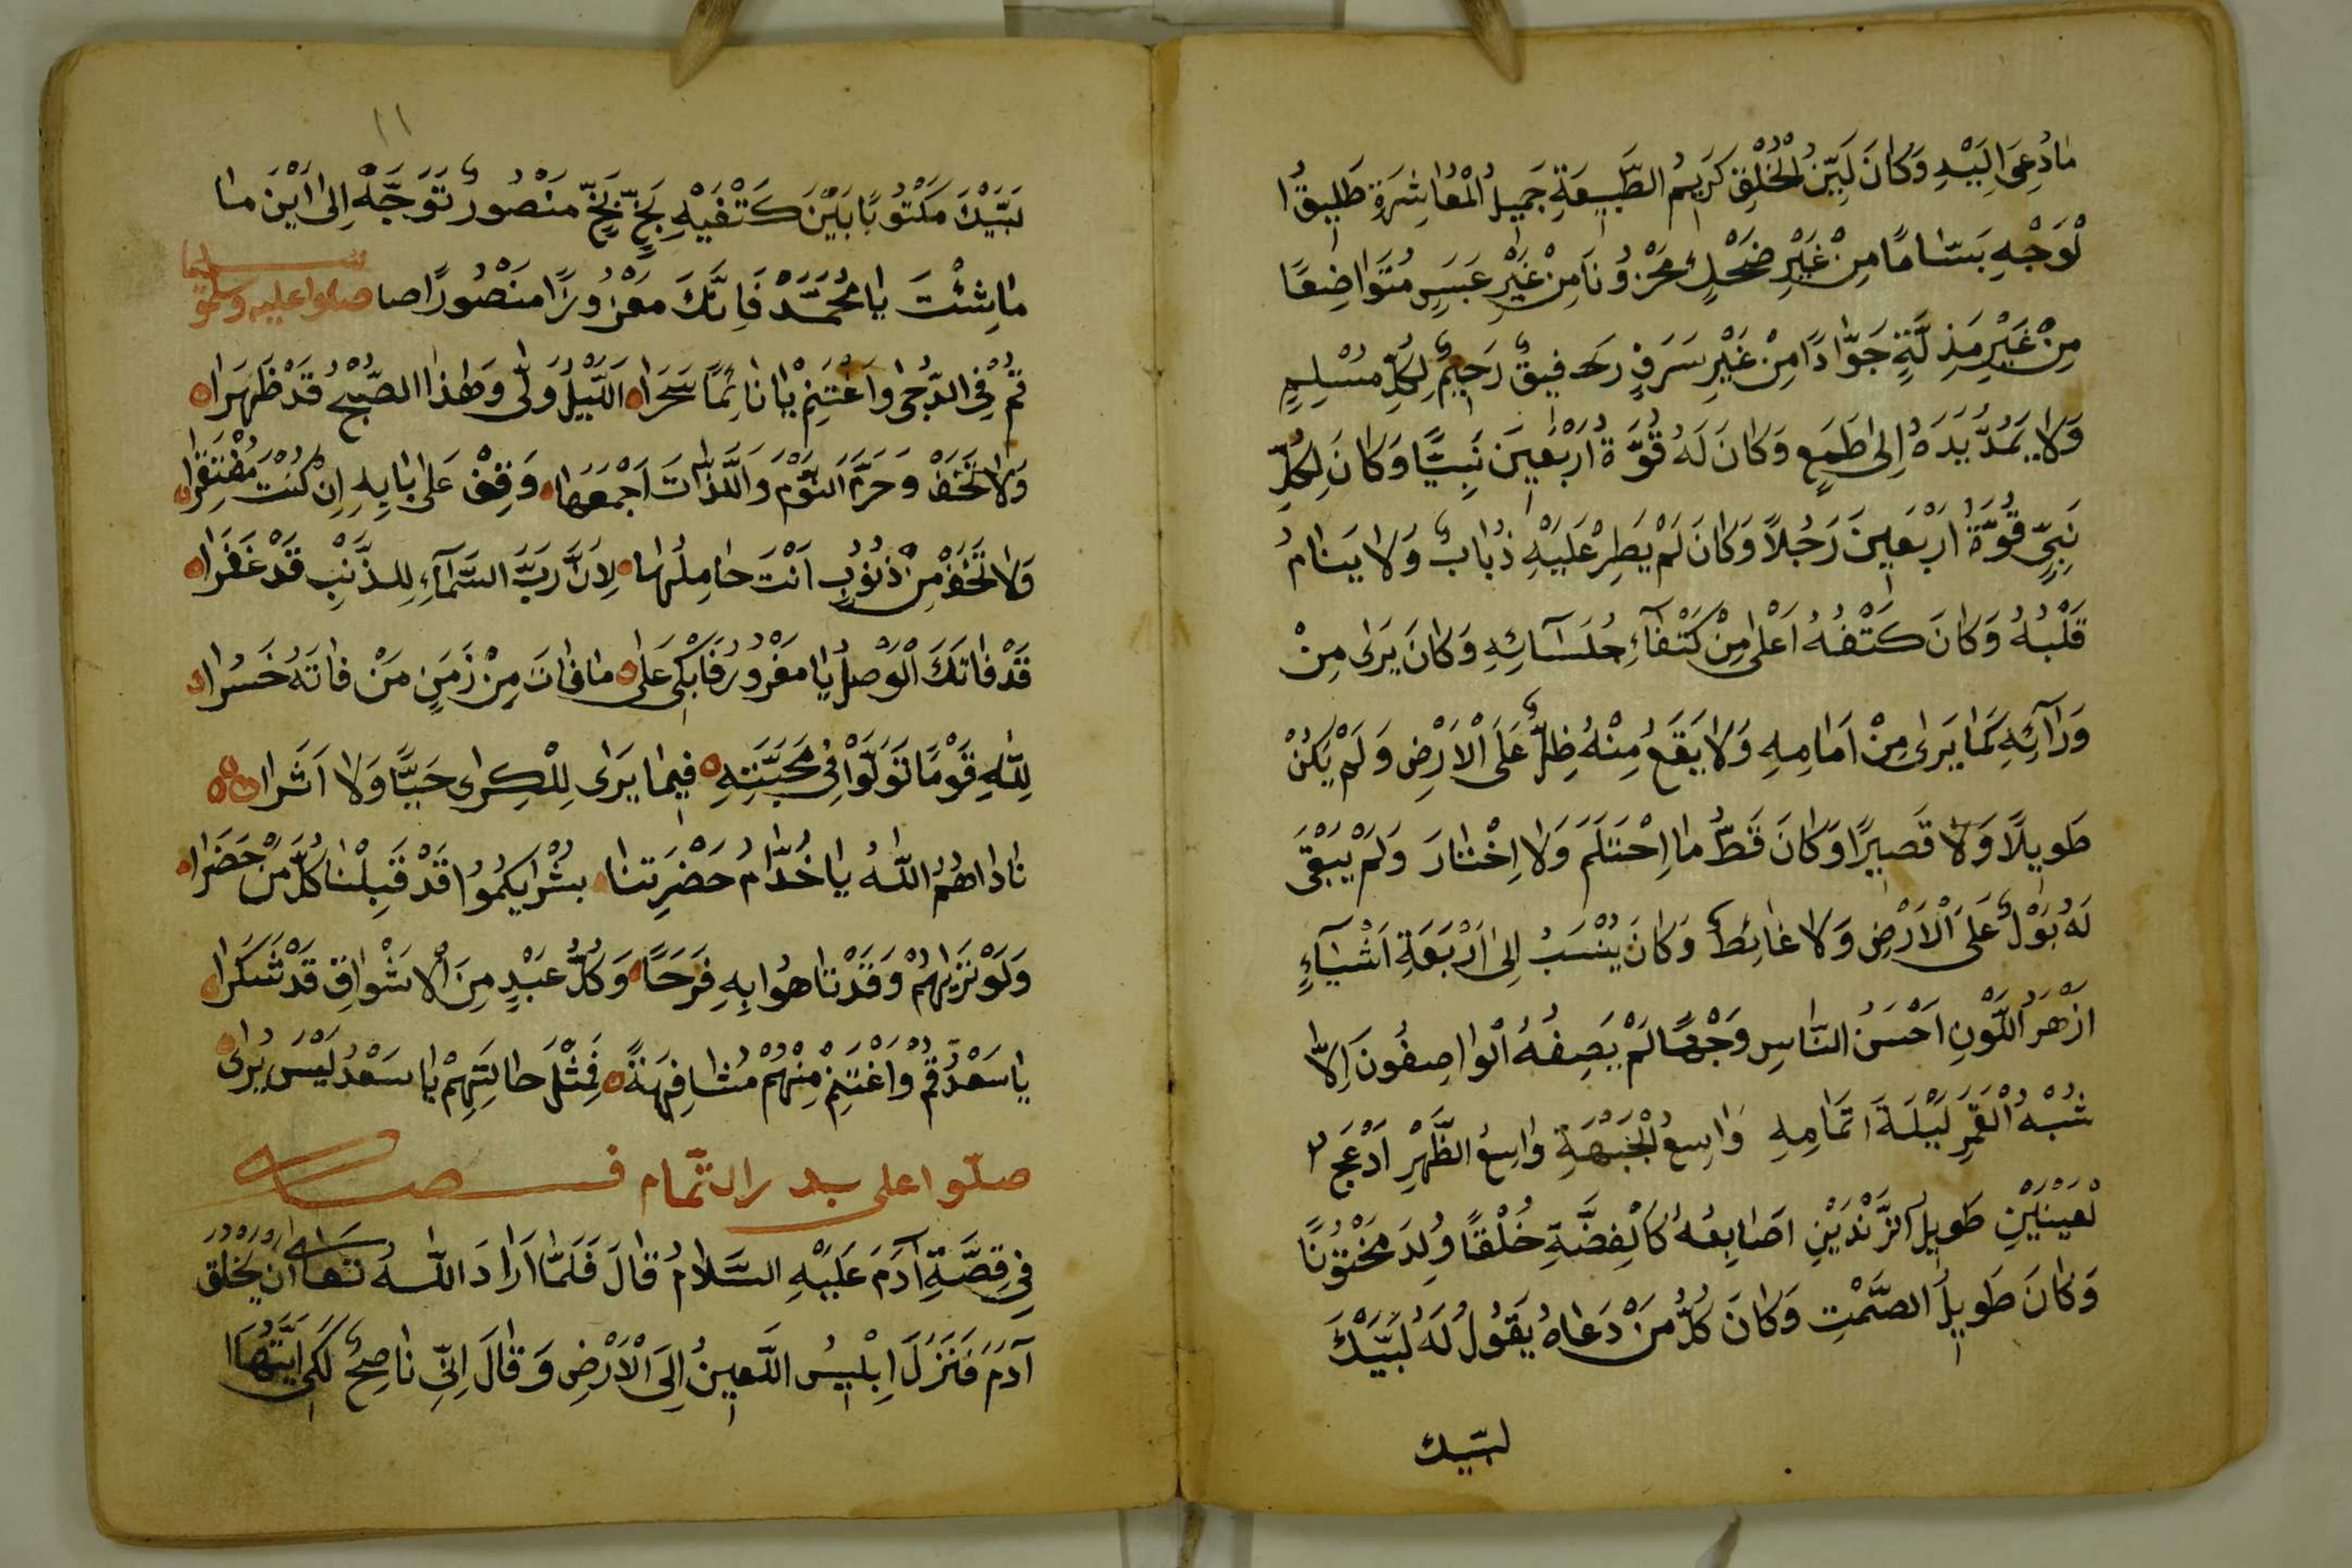 مَادُعِىَ اِلَيْهِ وَكَانَ لَيِّنَ الْخُلْقِ كَرِيمُ الطَّبِيعَةِ جَمِيلُ الْمُعَاشَرَةِ طَلِيقُ ا
لْوَجْهِ بَسَّامًا مِنْ غَيْرِ ضَحْكٍ مَحْزُونًا مِنْ غَيْرِ عَبَسٍ مُتَوَاضِعًا
مِنْ غَيْرِ مَذِلَّةٍ جَوَّادًا مِنْ غَيْرِ سَرَفٍ رَفِيقٌ رَحِيمٌ لِكُلِّ مُسْلِمٍ
وَلَا يَمُدُّ يَدَهُ اِلَى طَمَعٍ وَكَانَ لَهُ قُوَّةُ اَرْبَعِينَ نَبِيًّا وَكَانَ لِكُلِّ
نَبِيٍّ قُوَّةُ اَرْبَعِينَ رَجُلاً وَكَانَ لَمْ يَطِرْ عَلَيْهِ ذُبَابٌ وَلَا يَنَامُ
قَلْبُهُ وَكَانَ كَتْفُهُ اَعْلَى مِنْ كَتْفَاءِ جُلَسَآئِهِ وَكَانَ يَرَى مِنْ
وَرَآئِهِ كَمَا يَرَى مِنْ اَمَامِهِ وَلَا يَقَعُ مِنْهُ ظِلٌّ عَلَى الْاَرْضِ وَلَمْ يَكُنْ
طَوِيلًا وَلَا قَصِيرًا وَكَانَ قَطُّ مَا اِحْتَلَمَ وَلَا اِخْتَارَ وَلَمْ يَبْقَى
لَهُ بَوْلٌ عَلَى الْاَرْضِ وَلَا غَائِطٌ وَكَانَ يُنْسَبُ اِلَى اَرْبَعَةِ اَشْيَآءٍ
اَزْهَرُ اللَّوْنِ اَحْسَنُ النَّاسِ وَجْهًا لَمْ يَصِفُهُ الْوَاصِفُونَ اِلَّا
شُبْهُ الْقَمَرِ لَيْلَةَ اتَمَامِهِ وَاسِعُ الْجَبْهَةِ وَاسِعُ الظَّهْرِ اَدْعَجُ ا
لْعَيْنَيْنِ طَوِيلُ الزَّنْدَيْنِ اَصَابِعُهُ كَالْفِضَّةِ خُلْقًا وُلِدَ مَخْتُونًا
وَكَانَ طَوِيلُ الصَّمْتِ وَكَانَ كُلُّ مَنْ دَعَاهُ يَقُولُ لَهُ لَبَّيْكَ
لبّيك
١١
لَبَّيْكَ مَكْتُوبًا بَيْنَ كَتْفَيْهِ بَخٍّ بَخٍّ مَنْصُورٌ تَوَجَّهْ اِلَى اَيْنَ مَا
مَا شِئْتَ يَا مُحَمَّدْ فَاِنَّكَ مَعْزُوزًا مَنْصُورًا صا صلوا عليه وسلمو تسليما
قُمْ فِي الدُّجَى وَاغْتَنِمْ يَا نَائِمًا سَحَرَا اللَّيْلُ وَلَّى وَهٰذَا الصُّبْحُ قَدْ ظَهَرَا
وَلَا تَخَفْ وَحَرَّمَ النَّوْمَ وَاللَّذَّاتَ اَجْمَعَهَا وَقِفْ عَلَى بَابِهِ اِنْ كُنْتَ مُفْتَقِرَا
وَلَا تَخَفْ مِنْ ذُنُوبٍ اَنْتَ حَامِلُهَا لِاَنَّ رَبَّ السَّمَآءِ لِلذَّنْبِ قَدْ غَفَرَا
قَدْ فَاتَكَ الْوَصْلُ يَا مَغْرُورُ فَابْكِى عَلَى مَا فَاتَ مِنْ زَمَنٍ مَنْ فَاتَهُ خَسُرَا
لِلّٰهِ قَوْمًا تَوَلَّوْا فِي مَحَبَّتِهِ فِيمَا يَرَى لِلْكِرَى حَبًّا وَلَا اَثَرَا
نَادَاهُمُ اللّٰهُ يَا خُدَّامُ حَضْرَتِنَا بُشْرَايكُمُوا قَدْ قَبِلْنَا كُلَّ مَنْ حَضَرَا
وَلَوْ تَرَيهُمْ وَقَدْ تَاهُوا بِهِ فَرَحًا وَكُلُّ عَبْدٍ مِنَ الْاَشْوَاقِ قَدْ شَكَرَا
يَا سَعْدُ قُمْ وَاغْتَنِمْ مِنْهُمْ مُشَافَهَةً فَمِثْلَ حَالَتِهِمْ يَا سَعْدُ لَيْسَ يُرَى
صلّوا على بدر التّمام
فِي قِصَّةِ آدَمَ عَلَيْهِ السَّلَامُ قَالَ فَلَمَّا اَرَادَ اللّٰهُ تَعَالَى اَنْ يَخْلُقَ
آدَمَ فَنَزَلَ اِبْلِيسُ اللَّعِينُ اِلَى الْاَرْضِ وَقَالَ اِنِّى نَاصِحٌ لَكِى اَيَّتُهَا ا